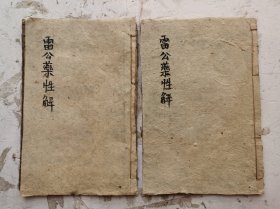 雷公藥性解
雷公藥性解